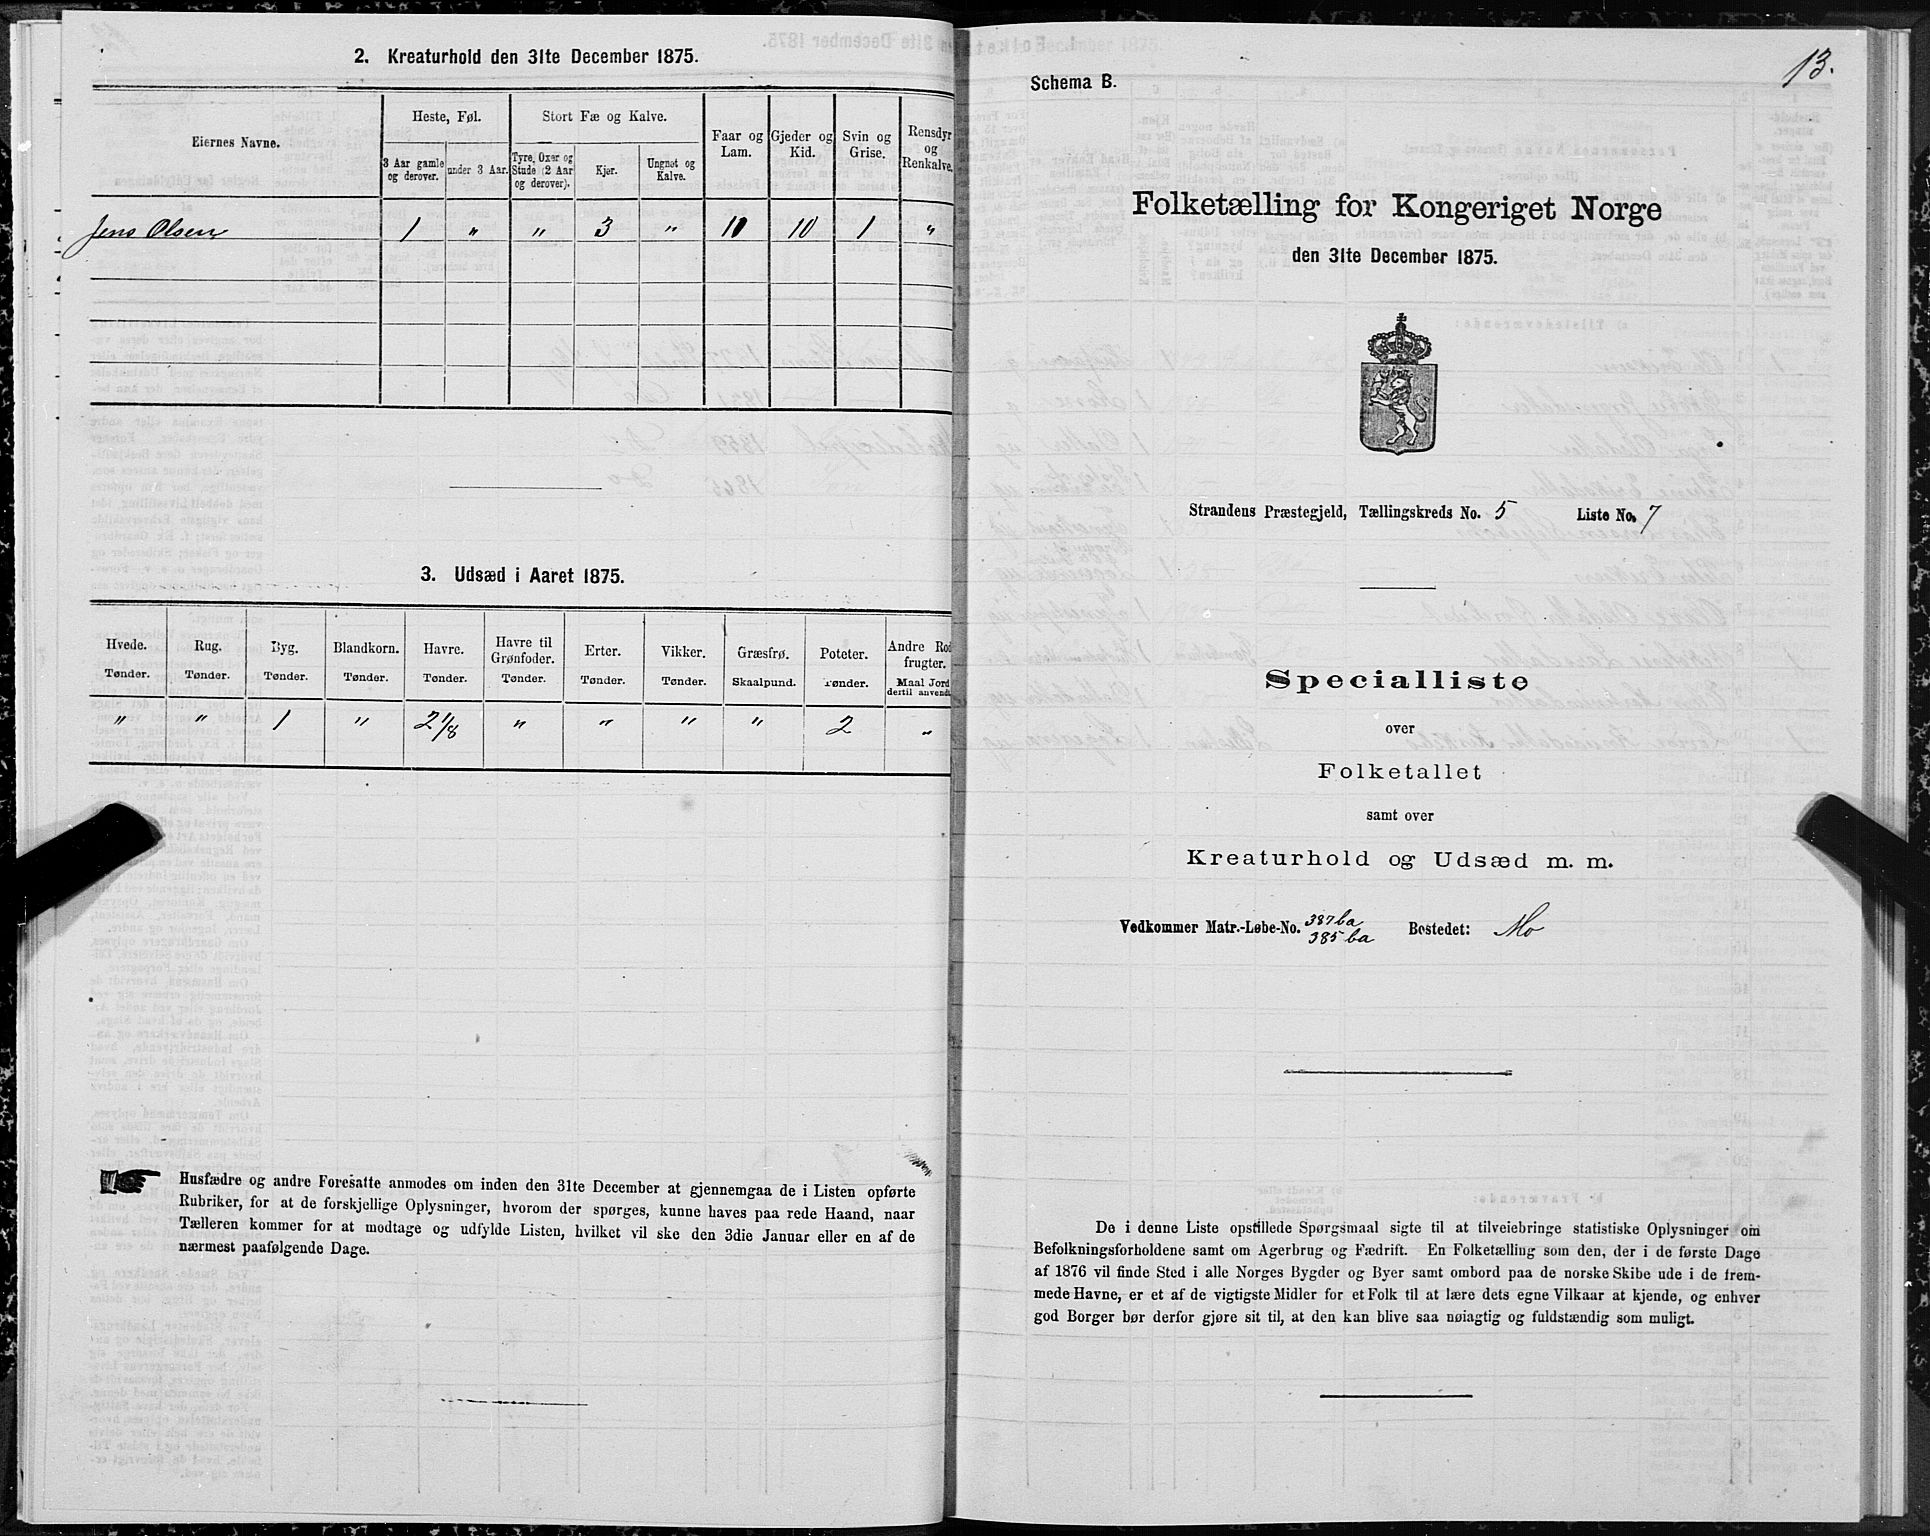 2. Kreaturhold den 31te December 1875.
Eiernes Navne.
Heste, Føl.
Stort Fæ og Kalve.
Faar og Lam.
Gjeder og Kid.
Svin og Grise.
Rensdyr og Renkalve.
3 Aar gamle og derover.
under 3 Aar.
Tyre, Oxer og Stude (2 Aar og derover).
Kjør.
Ungnøt og Kalve.
Jens Olsen 1 " " 3 " 10 10 1 "
3. Udsæd i Aaret 1875.
Hvede. Rug. Byg. Blandkorn. Havre. Havre til Grønfoder. Erter. Vikker. Græsfrø. Poteter. Andre Rodfrugter.
Tønder. Tønder. Tønder. Tønder. Tønder. Tønder. Tønder. Tønder. Skaalpund. Tønder. Maal Jord dertil anvendt
" " 1 " 2 1/8 " " " " 2 "
Husfædre og andre Foresatte anmodes om inden den 31te December at gjennemgaa de i Listen opførte
Rubriker, for at de forskjellige Oplysninger, hvorom der spørges, kunne haves paa rede Haand, naar
Tælleren kommer for at modtage og udfylde Listen, hvilket vil ske den 3die Januar eller en af de
nærmest paafølgende Dage.
13.
Schema B.
Folketælling for Kongeriget Norge
den 31te December 1875.
Strandens Præstegjeld, Tællingskreds No. 5 Liste No. 7
Specialliste
over
Folketallet
samt over
Kreaturhold og Udsæd m. m.
Vedkommer Matr.-Løbe-No. 387ba 385ba Bostedet: Mo
De i denne Liste opstillede Spørgsmaal sigte til at tilveiebringe statistiske Oplysninger om
Befolkningsforholdene samt om Agerbrug og Fædrift. En Folketælling som den, der i de første Dage
af 1876 vil finde Sted i alle Norges Bygder og Byer samt ombord paa de norske Skibe ude i de frem-
mede Havne, er et af de vigtigste Midler for et Folk til at lære dets egne Vilkaar at kjende, og enhver
god Borger bør derfor gjøre sit til, at den kan blive saa nøiagtig og fuldstændig som muligt.